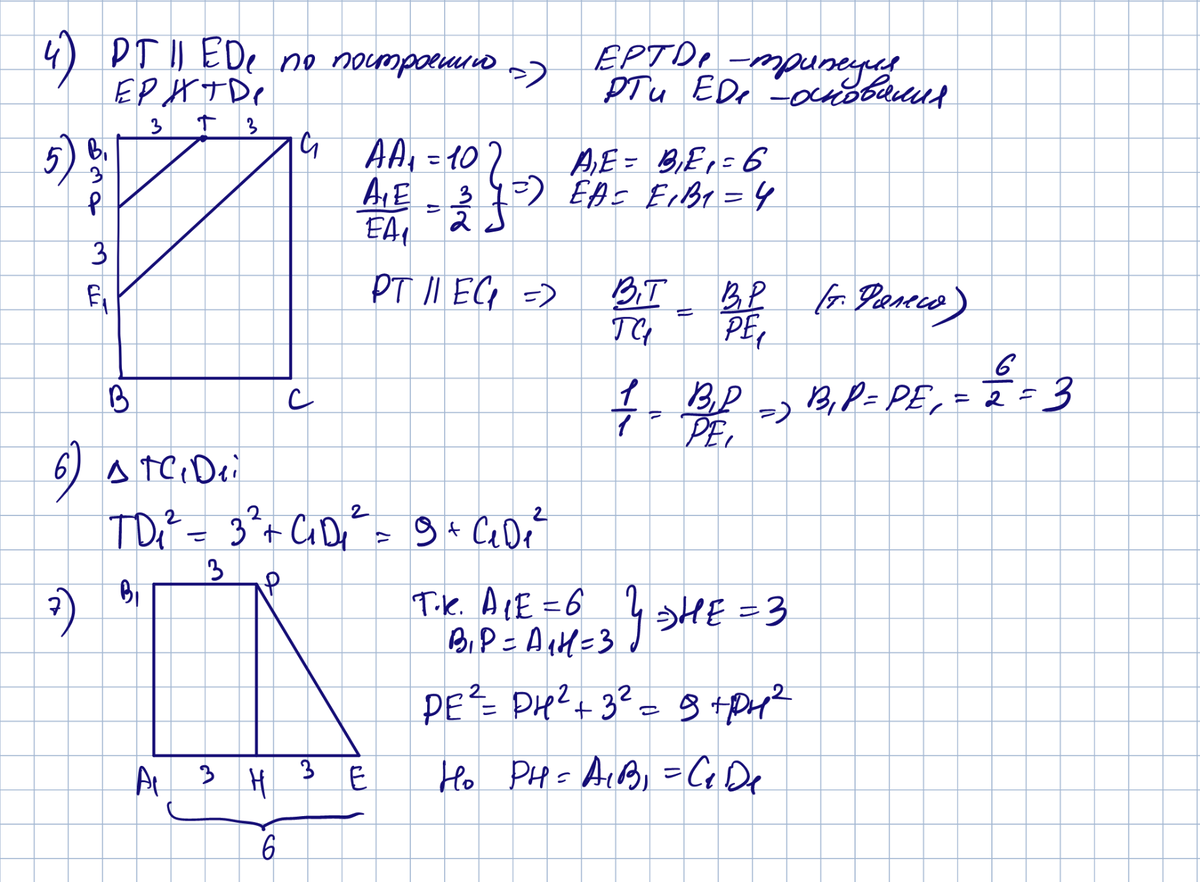 4) PT || ED₁ по построению => EPTD₁ – трапеция
EP ∦ TD₁ PT и ED₁ – основания
5) B₁ 3 T 3 C₁
3
P
3
E₁
B C
AA₁ = 10 } => A₁E = B₁E₁ = 6
A₁E/EA₁ = 3/2 EA = E₁B₁ = 4
PT || EC₁ => B₁T/TC₁ = B₁P/PE₁ (т. Фалеса)
1/1 = B₁P/PE₁ => B₁P = PE₁ = 6/2 = 3
6) Δ TC₁D₁:
TD₁² = 3² + C₁D₁² = 9 + C₁D₁²
7) B₁ 3 P
A₁ 3 H 3 E
6
Т.к. A₁E = 6 } => HE = 3
B₁P = A₁H = 3
PE² = PH² + 3² = 9 + PH²
Но PH = A₁B₁ = C₁D₁